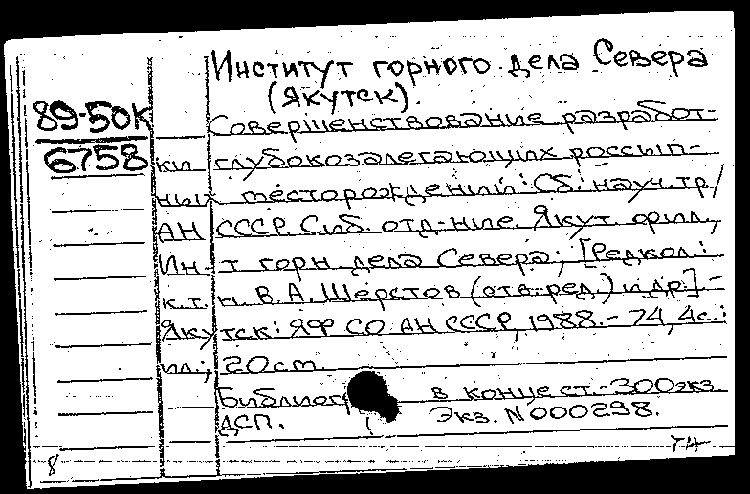 Институт горного дела Севера
(Якутск).
89-50к
6758
Совершенствование разработ-
ки глубокозалегающих россып-
ных месторождений: Сб. науч. тр/
АН СССР. Сиб. отд-ние. Якут. фил.,
Ин-т горн дела Севера; [Редкол.:
к.т.н. В.А. Шерстов (отв. ред.) и др]. -
Якутск: ЯФ СО АН СССР, 1988. - 74, 4с.:
ил.; 20 cm.
Библиогр в конце ст. - 300 экз
ДСП. Экз. N 000238.
8